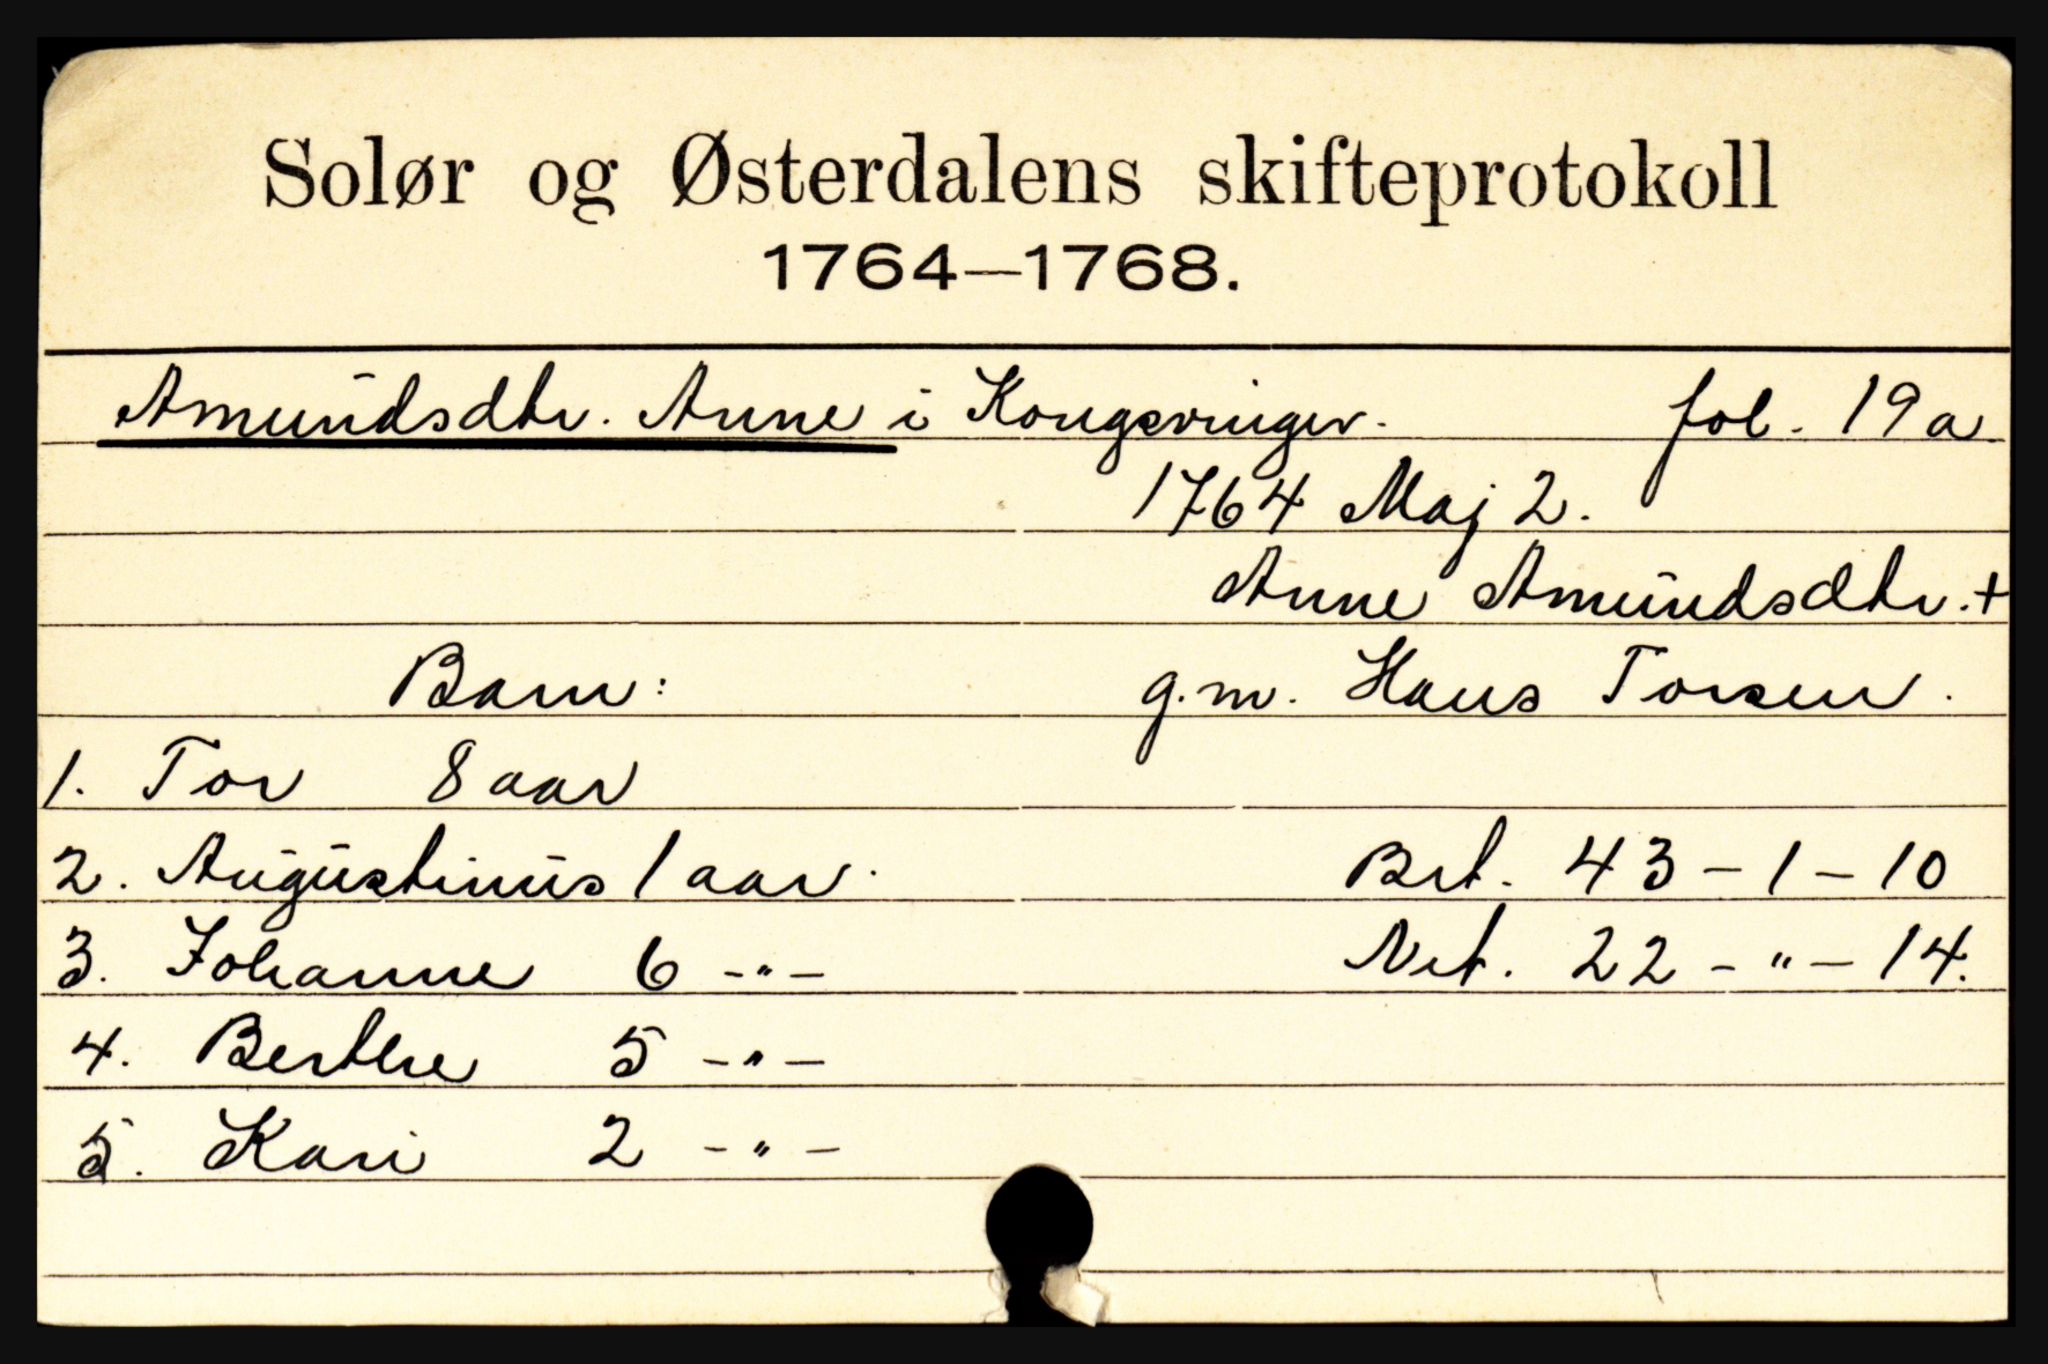 Solør og Østerdalens skifteprotokoll
1764—1768.
Amundsdtr. Anne i Kongsvinger. fol. 19a
1764 Maj 2.
Anne Amundsdtr. +
Barn: g.m. Hans Torsen.
1. Tor 8 aar
2. Augustinus 1 aar. Brt. 43 - 1 - 10
3. Johanne 6 -"- Net. 22 - " - 14.
4. Berthe 5 -"-
5. Kari 2 -"-